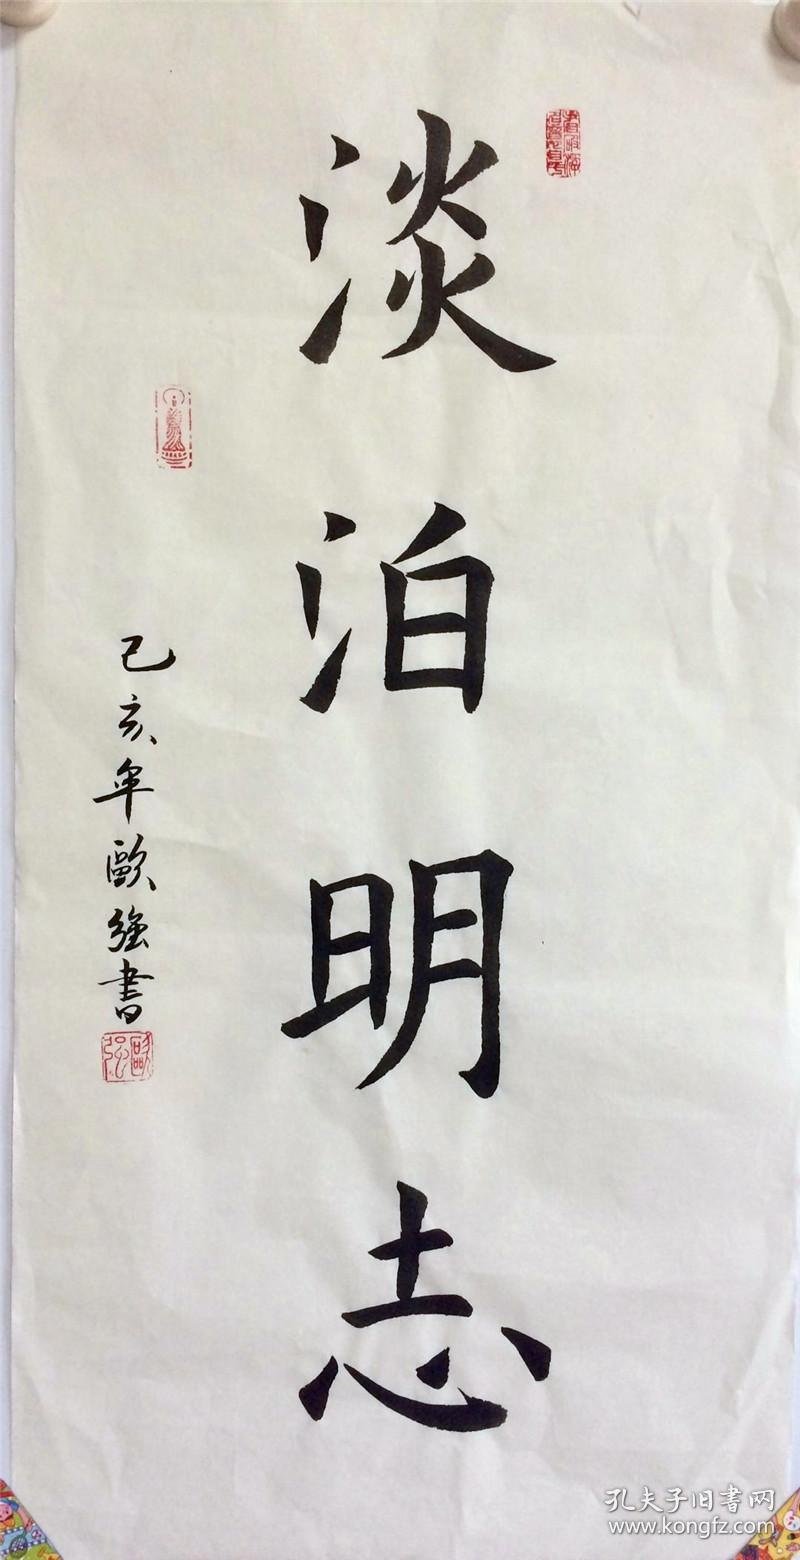 淡泊明志
己亥年歐強書
歐强
孔夫子旧書网
www.kongfz.com